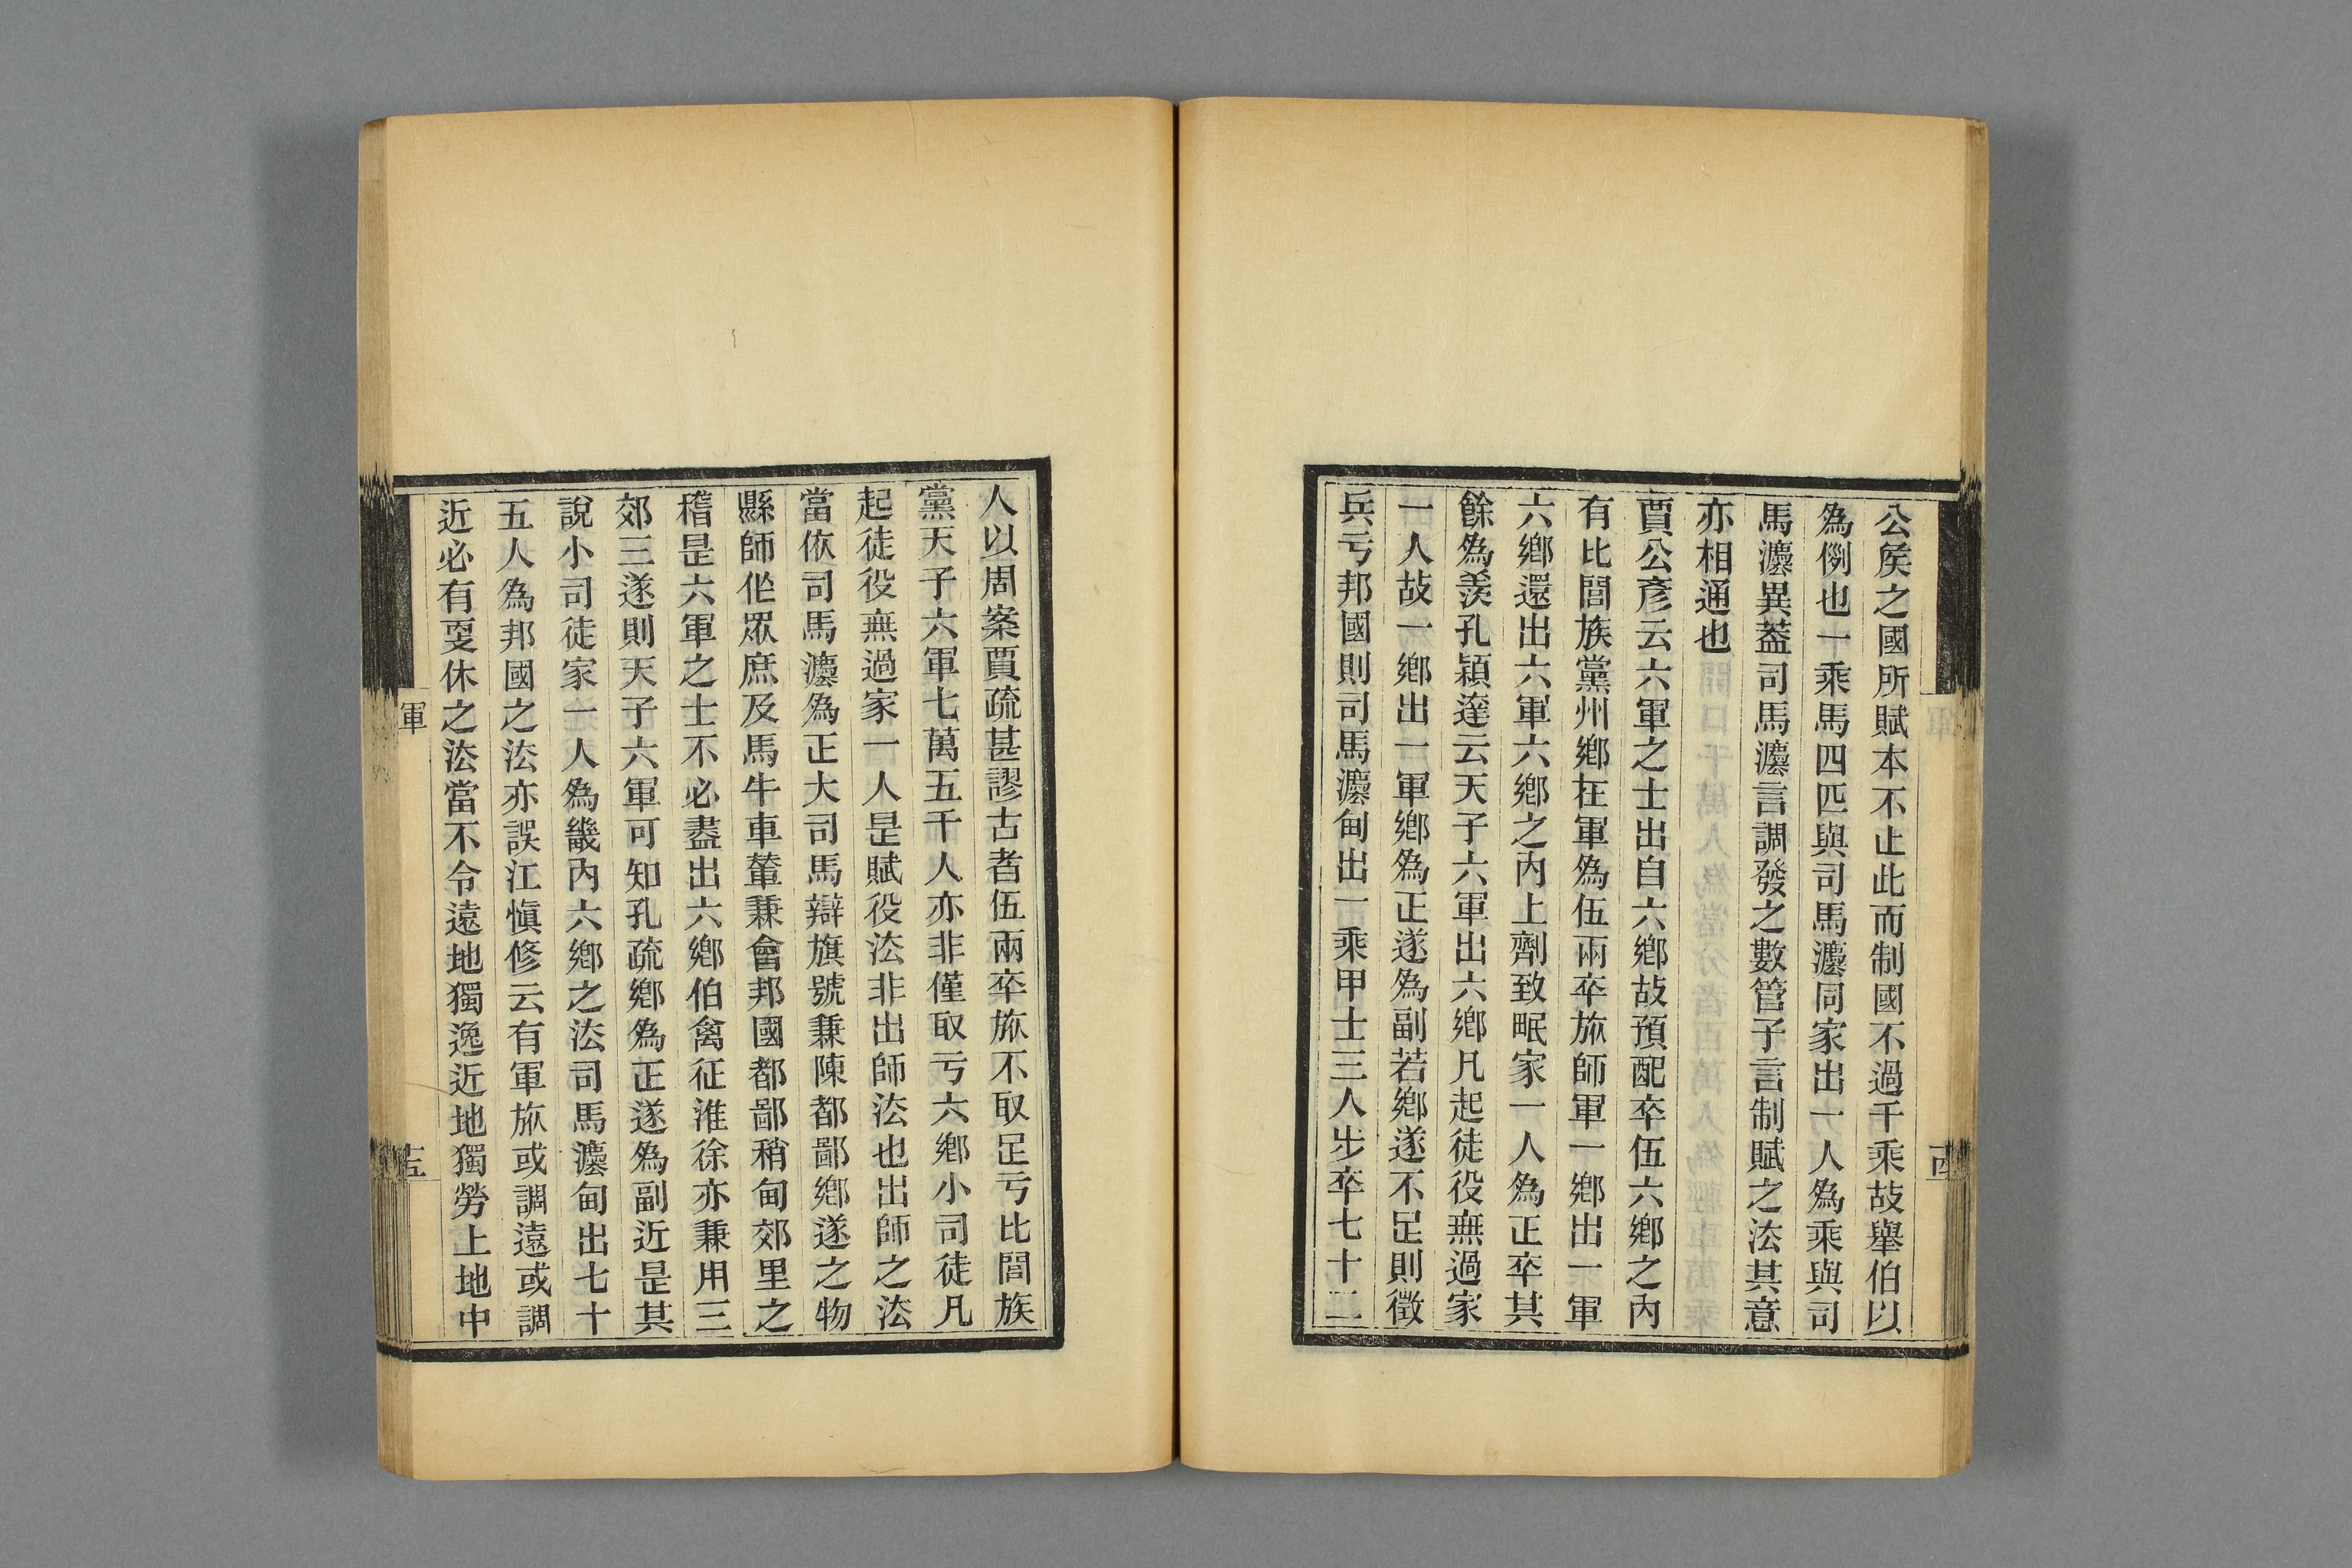 公矦之國所賦本不止此而制國不過千乘故舉伯以
爲例也一乘馬四匹與司馬灋同家出一人爲乘與司
馬灋異葢司馬灋言調發之數管子言制賦之法其意
亦相通也
賈公彥云六軍之士出自六鄉故預配卒伍六鄉之內
有比閭族黨州鄉在軍爲伍兩卒旅師軍一鄉出一軍
六鄉還出六軍六鄉之內上劑致甿家一人爲正卒其
餘爲羨孔穎達云天子六軍出六鄉凡起徒役無過家
一人故一鄉出一軍鄉爲正遂爲副若鄉遂不足則徵
兵亏邦國則司馬灋甸出一乘甲士三人步卒七十二
人以周案賈疏甚謬古者伍兩卒旅不取足亏比閭族
黨天子六軍七萬五千人亦非僅取亏六鄉小司徒凡
起徒役無過家一人是賦役法非出師法也出師之法
當依司馬灋爲正大司馬辯旗號兼陳都鄙鄉遂之物
縣師作眾庶及馬牛車輦兼會邦國都鄙稍甸郊里之
稽是六軍之士不必盡出六鄉伯禽征淮徐亦兼用三
郊三遂則天子六軍可知孔疏鄉爲正遂爲副近是其
說小司徒家一人爲畿內六鄉之法司馬灋甸出七十
五人爲邦國之法亦誤江愼修云有軍旅或調遠或調
近必有㪅休之法當不令遠地獨逸近地獨勞上地中
軍